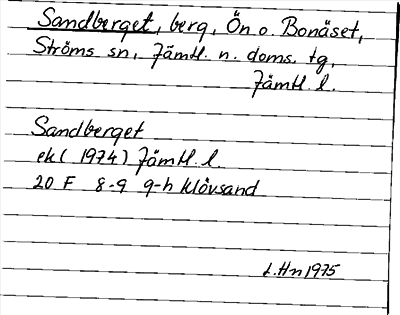 Sandberget, berg, Ön o. Bonäset,
Ströms sn, Jämtl. n. doms. tg,
Jämtl. l.
Sandberget
ek ( 1974) Jämtl. l
20 F 8-9 g-h klövsand
L.Hn 1975